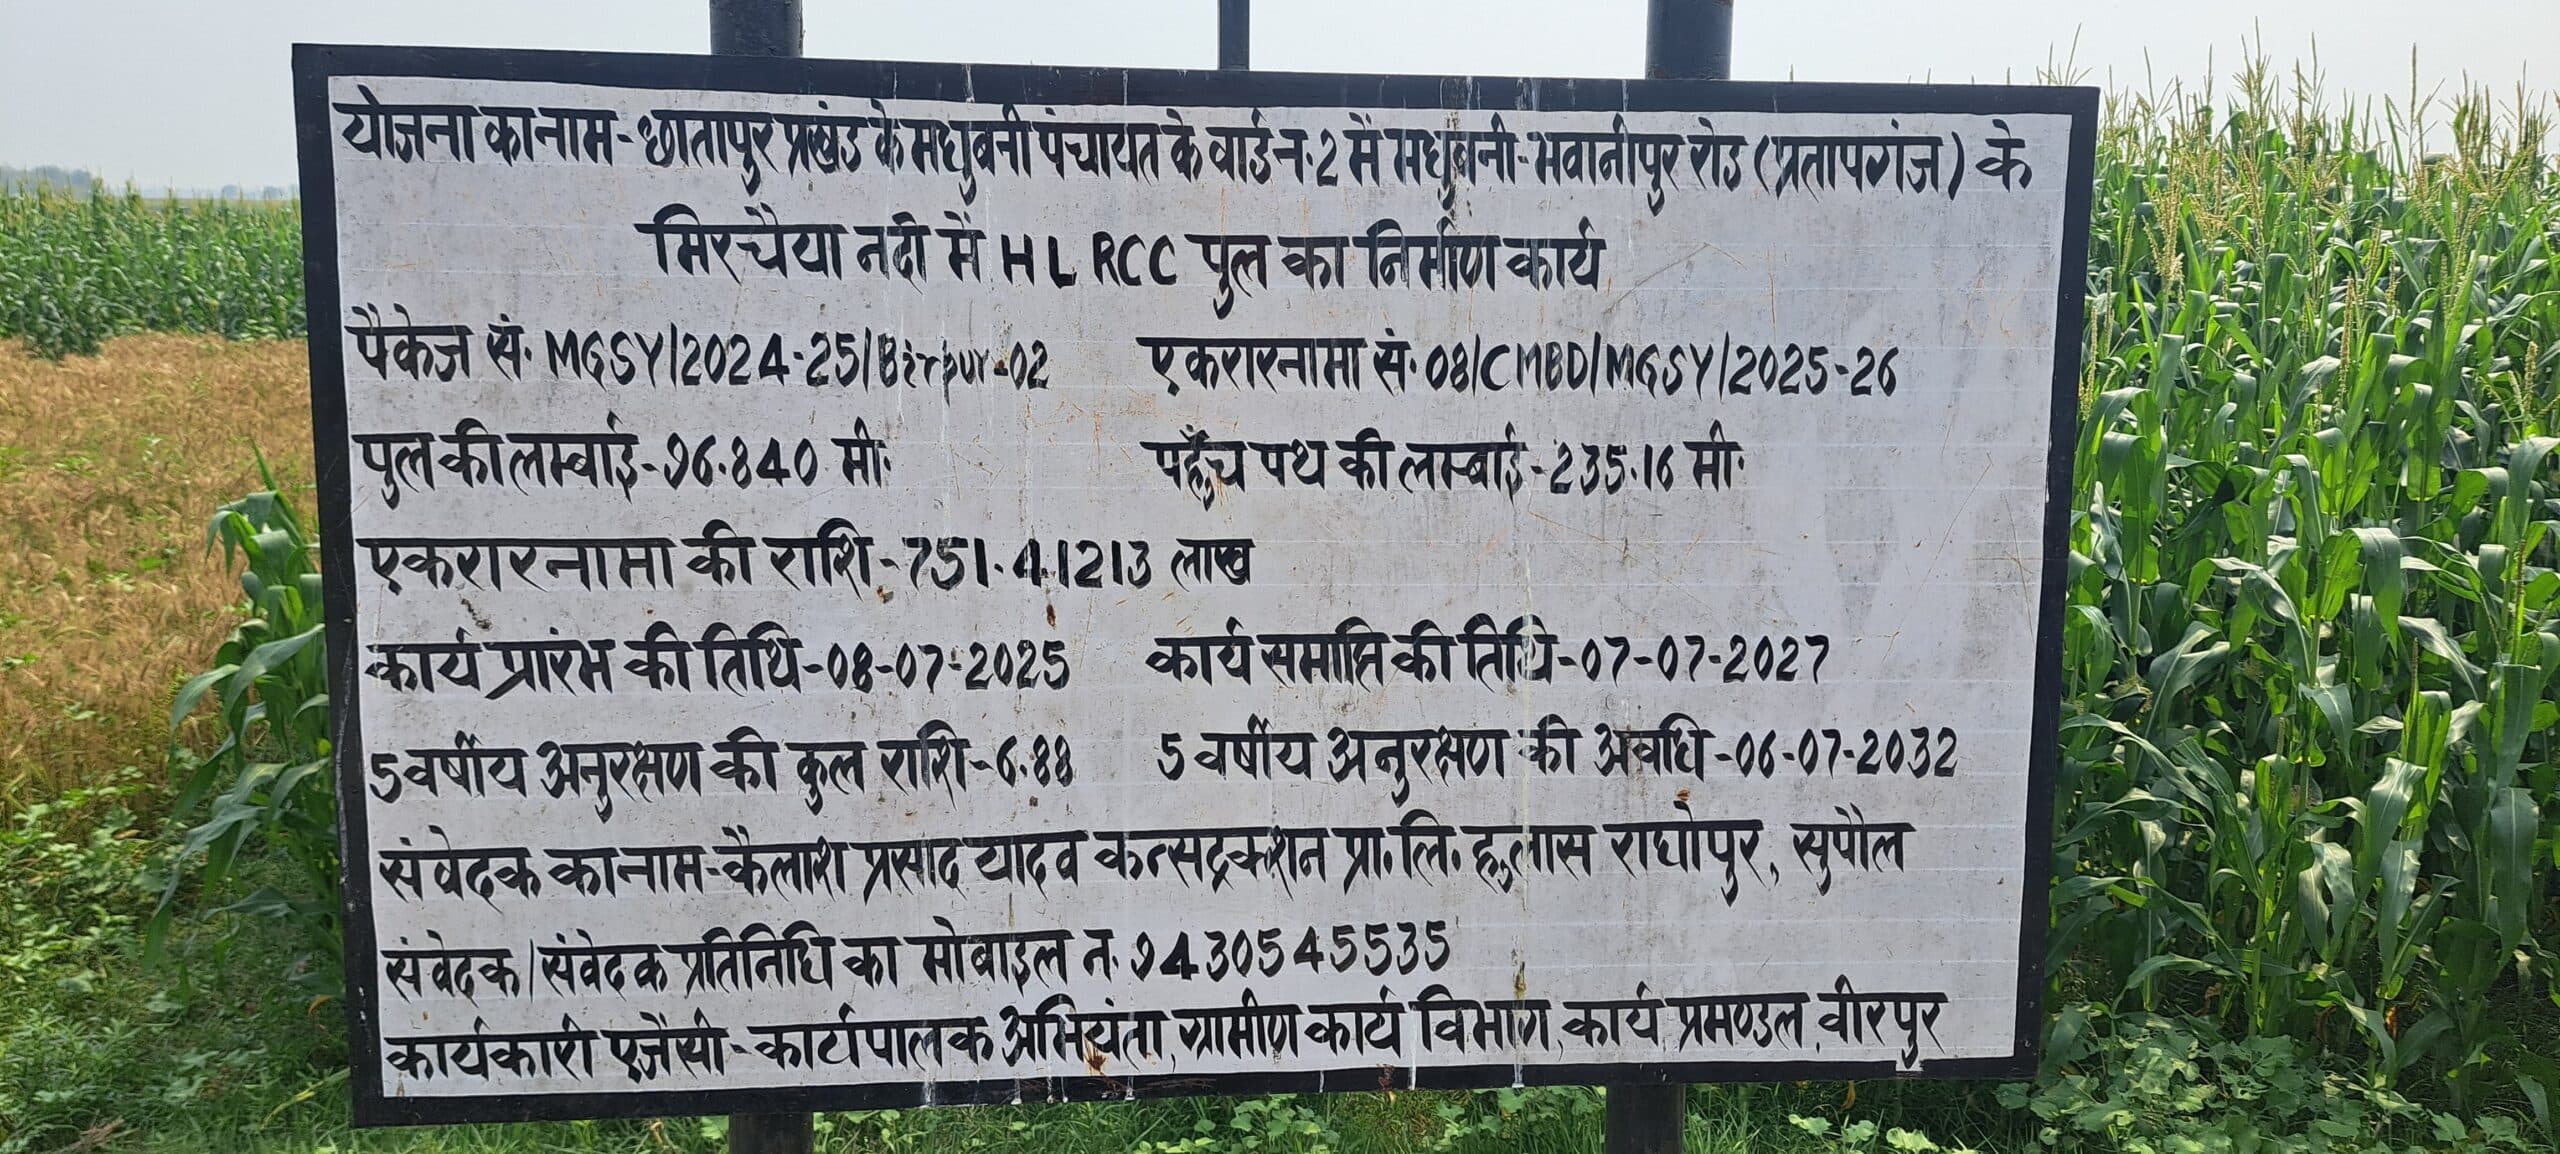 योजना का नाम-छातापुर प्रखंड के मधुबनी पंचायत के वार्ड न.2 में मधुबनी-भवानीपुर रोड (प्रतापगंज) के
मिरचैया नदी में HL RCC पुल का निर्माण कार्य
पैकेज सं. MGSY/2024-25/Birpur-02 एकरारनामा सं. 08/CMBD/MGSY/2025-26
पुल की लम्बाई-96.840 मी. पहुँच पथ की लम्बाई-235.16 मी.
एकरारनामा की राशि-751.41213 लाख
कार्य प्रारंभ की तिथि-08-07-2025 कार्य समाप्ति की तिथि-07-07-2027
5 वर्षीय अनुरक्षण की कुल राशि-6.88 5 वर्षीय अनुरक्षण की अवधि-06-07-2032
संवेदक का नाम-कैलाश प्रसाद यादव कन्सट्रक्शन प्रा.लि. हुलास राघोपुर, सुपौल
संवेदक/संवेदक प्रतिनिधि का मोबाइल न. 9430545535
कार्यकारी एजेंसी-कार्यपालक अभियंता, ग्रामीण कार्य विभाग, कार्य प्रमण्डल, वीरपुर